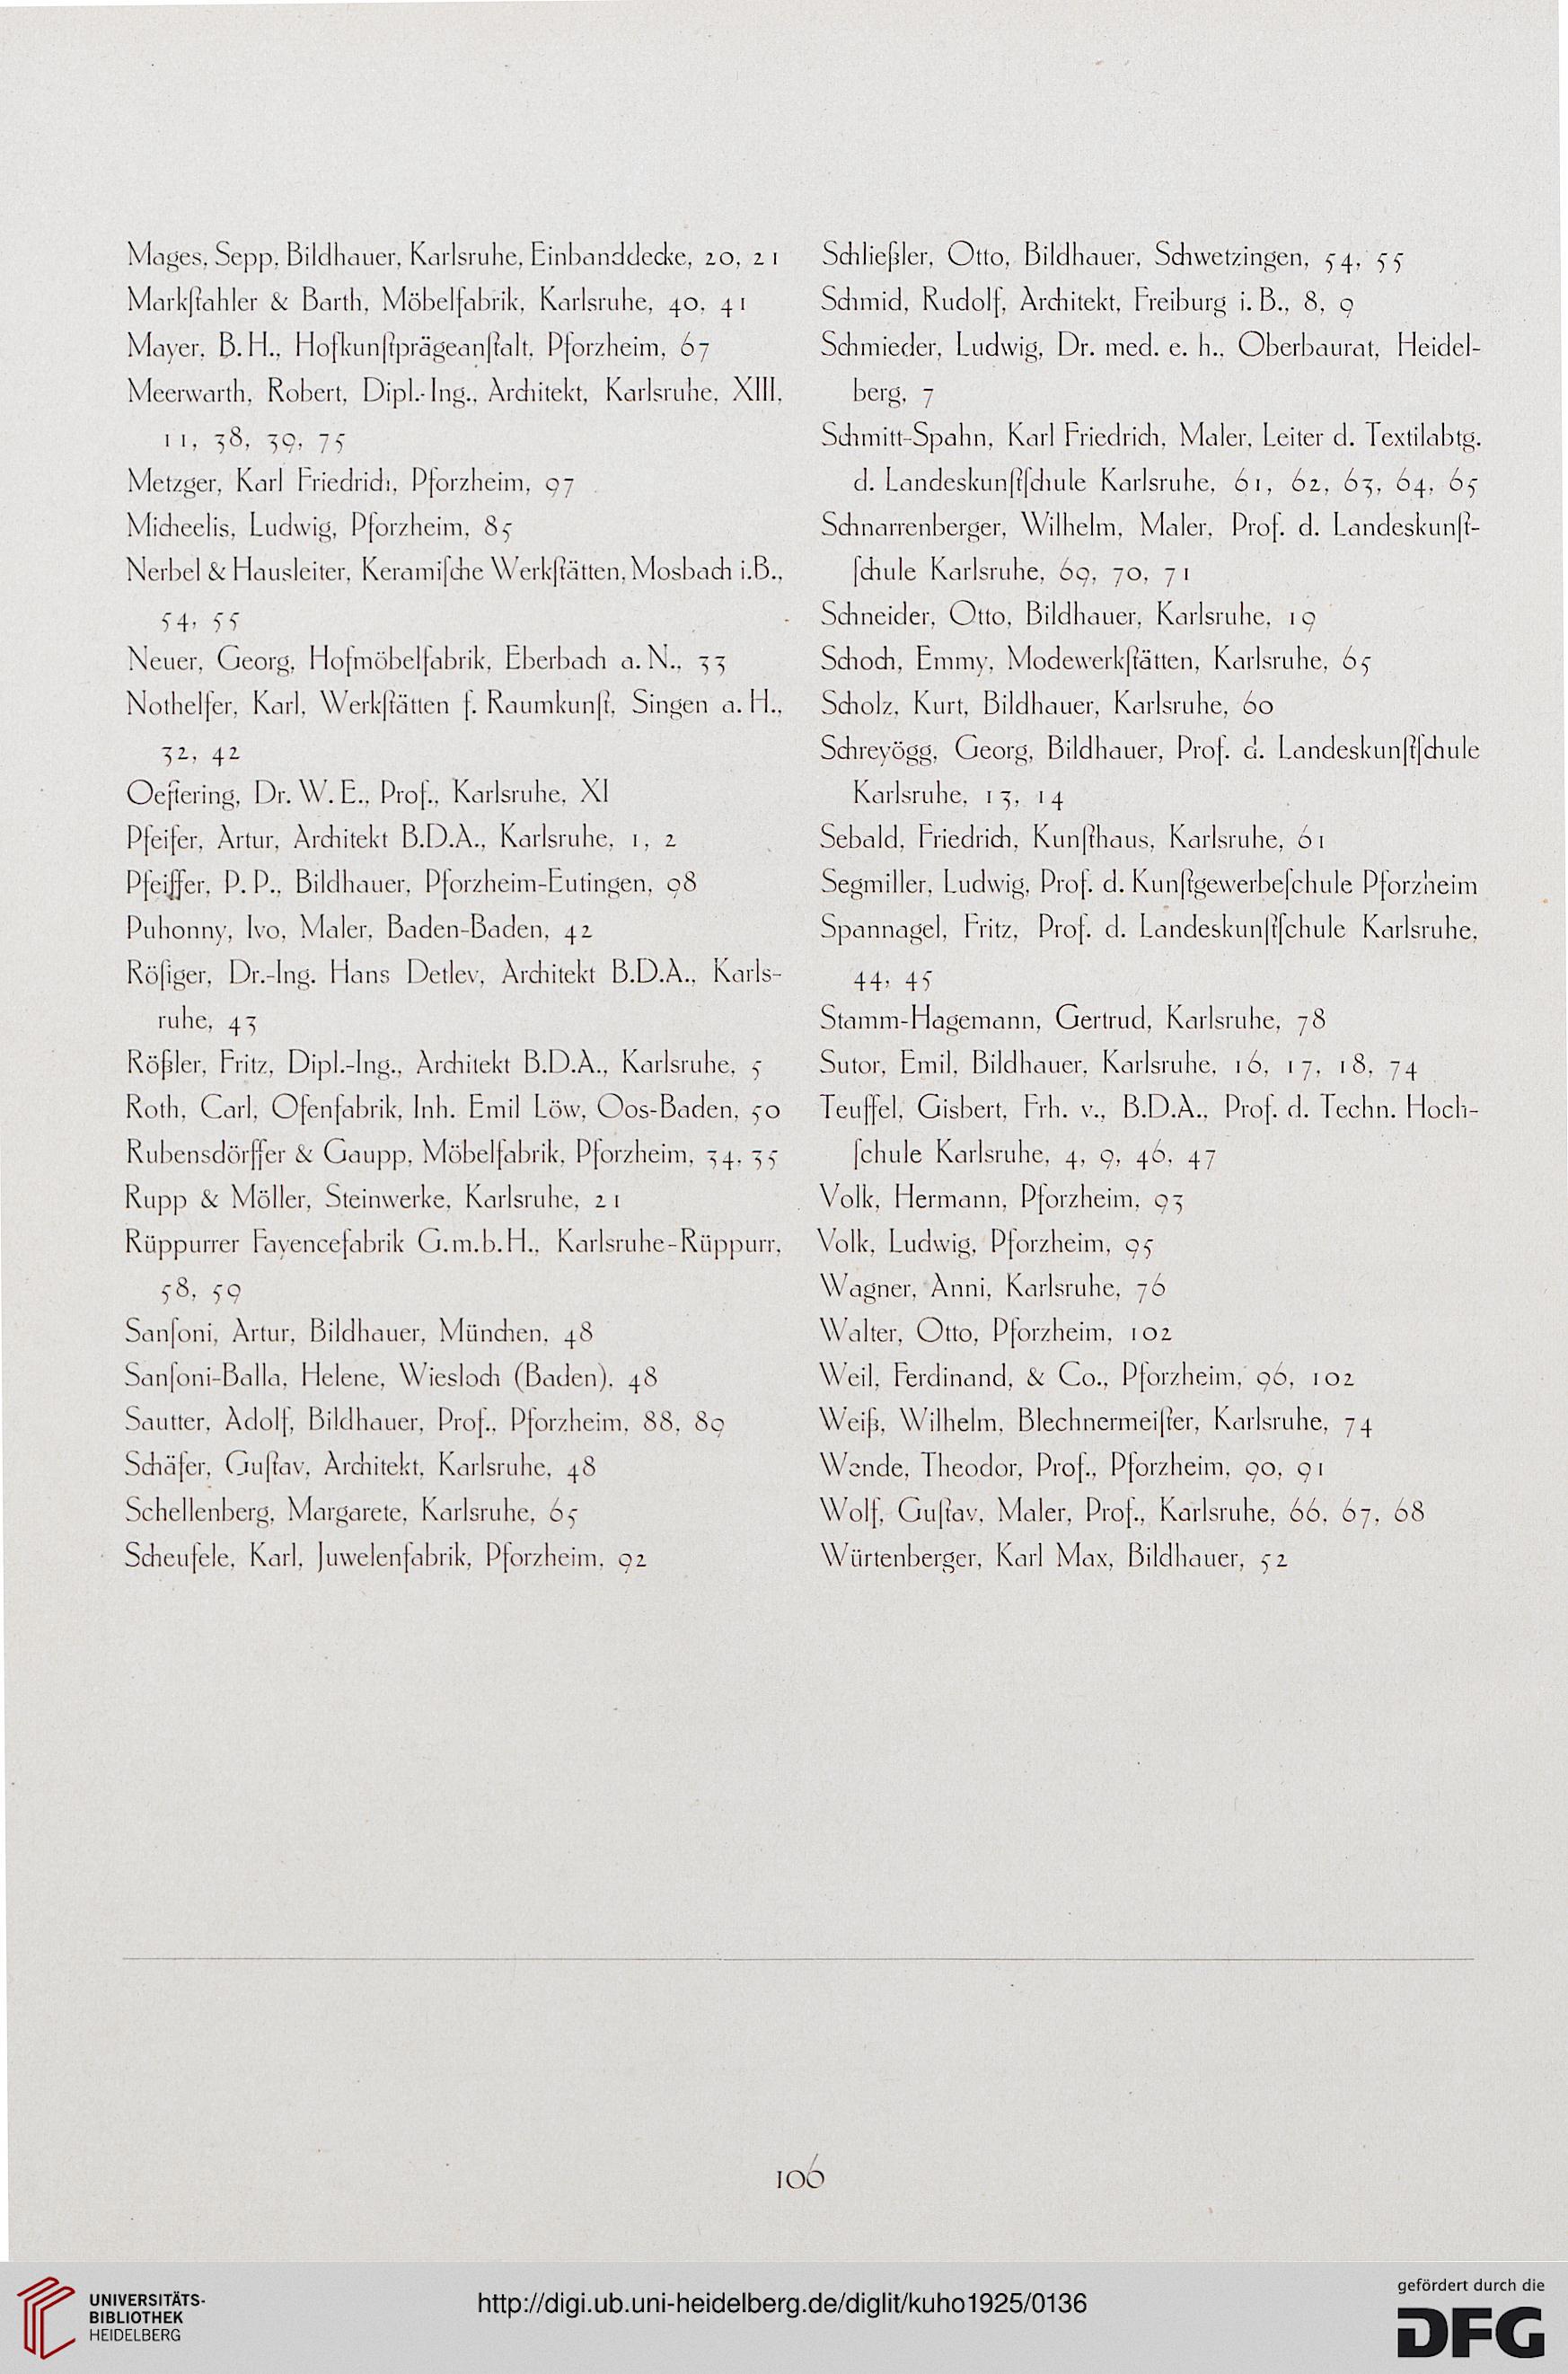 Mages, Sepp, Bildhauer, Karlsruhe, Einbanddecke, 20, 21
Markſtahler & Barth, Möbelfabrik, Karlsruhe, 40, 41
Mayer, B. H., Hofkunſtprägeanſtalt, Pforzheim, 67
Meerwarth, Robert, Dipl.-Ing., Architekt, Karlsruhe, XIII,
11, 38, 39, 75
Metzger, Karl Friedrich, Pforzheim, 97
Micheelis, Ludwig, Pforzheim, 85
Nerbel & Hausleiter, Keramiſche Werkſtätten, Mosbach i.B.,
54, 55
Neuer, Georg, Hofmöbelfabrik, Eberbach a. N., 33
Nothelfer, Karl, Werkſtätten f. Raumkunſt, Singen a. H.,
32, 42
Oeſtering, Dr. W. E., Prof., Karlsruhe, XI
Pfeifer, Artur, Architekt B.D.A., Karlsruhe, 1, 2
Pfeiffer, P. P., Bildhauer, Pforzheim-Eutingen, 98
Puhonny, Ivo, Maler, Baden-Baden, 42
Röſiger, Dr.-Ing. Hans Detlev, Architekt B.D.A., Karls-
ruhe, 43
Rößler, Fritz, Dipl.-Ing., Architekt B.D.A., Karlsruhe, 5
Roth, Carl, Ofenfabrik, Inh. Emil Löw, Oos-Baden, 50
Rubensdörffer & Gaupp, Möbelfabrik, Pforzheim, 34, 35
Rupp & Möller, Steinwerke, Karlsruhe, 21
Rüppurrer Fayencefabrik G.m.b.H., Karlsruhe-Rüppurr,
58, 59
Sanſoni, Artur, Bildhauer, München, 48
Sanſoni-Balla, Helene, Wiesloch (Baden), 48
Sautter, Adolf, Bildhauer, Prof., Pforzheim, 88, 89
Schäfer, Guſtav, Architekt, Karlsruhe, 48
Schellenberg, Margarete, Karlsruhe, 65
Scheufele, Karl, Juwelenfabrik, Pforzheim, 92
Schließler, Otto, Bildhauer, Schwetzingen, 54, 55
Schmid, Rudolf, Architekt, Freiburg i. B., 8, 9
Schmieder, Ludwig, Dr. med. e. h., Oberbaurat, Heidel-
berg, 7
Schmitt-Spahn, Karl Friedrich, Maler, Leiter d. Textilabtg.
d. Landeskunſtſchule Karlsruhe, 61, 62, 63, 64, 65
Schnarrenberger, Wilhelm, Maler, Prof. d. Landeskunſt-
ſchule Karlsruhe, 69, 70, 71
Schneider, Otto, Bildhauer, Karlsruhe, 19
Schoch, Emmy, Modewerkſtätten, Karlsruhe, 65
Scholz, Kurt, Bildhauer, Karlsruhe, 60
Schreyögg, Georg, Bildhauer, Prof. d. Landeskunſtſchule
Karlsruhe, 13, 14
Sebald, Friedrich, Kunſthaus, Karlsruhe, 61
Segmiller, Ludwig, Prof. d. Kunſtgewerbeſchule Pforzheim
Spannagel, Fritz, Prof. d. Landeskunſtſchule Karlsruhe,
44, 45
Stamm-Hagemann, Gertrud, Karlsruhe, 78
Sutor, Emil, Bildhauer, Karlsruhe, 16, 17, 18, 74
Teuffel, Gisbert, Frh. v., B.D.A., Prof. d. Techn. Hoch-
ſchule Karlsruhe, 4, 9, 46, 47
Volk, Hermann, Pforzheim, 93
Volk, Ludwig, Pforzheim, 95
Wagner, Anni, Karlsruhe, 76
Walter, Otto, Pforzheim, 102
Weil, Ferdinand, & Co., Pforzheim, 96, 102
Weiß, Wilhelm, Blechnermeiſter, Karlsruhe, 74
Wende, Theodor, Prof., Pforzheim, 90, 91
Wolf, Guſtav, Maler, Prof., Karlsruhe, 66, 67, 68
Würtenberger, Karl Max, Bildhauer, 52
106
UNIVERSITÄTS-
BIBLIOTHEK
HEIDELBERG
http://digi.ub.uni-heidelberg.de/diglit/kuho1925/0136
gefördert durch die
DFG